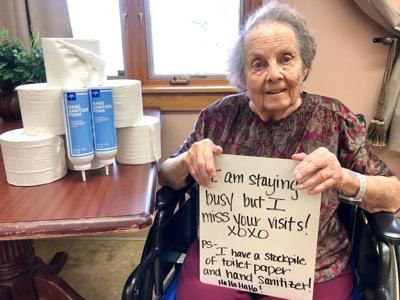 HAND
SANITIZER
FOAM
HAND
SANITIZER
FOAM
I am staying
busy but I
miss your visits!
xoxo
PS- I have a stockpile
of toilet paper
and hand sanitizer!
HaHaHaHa!